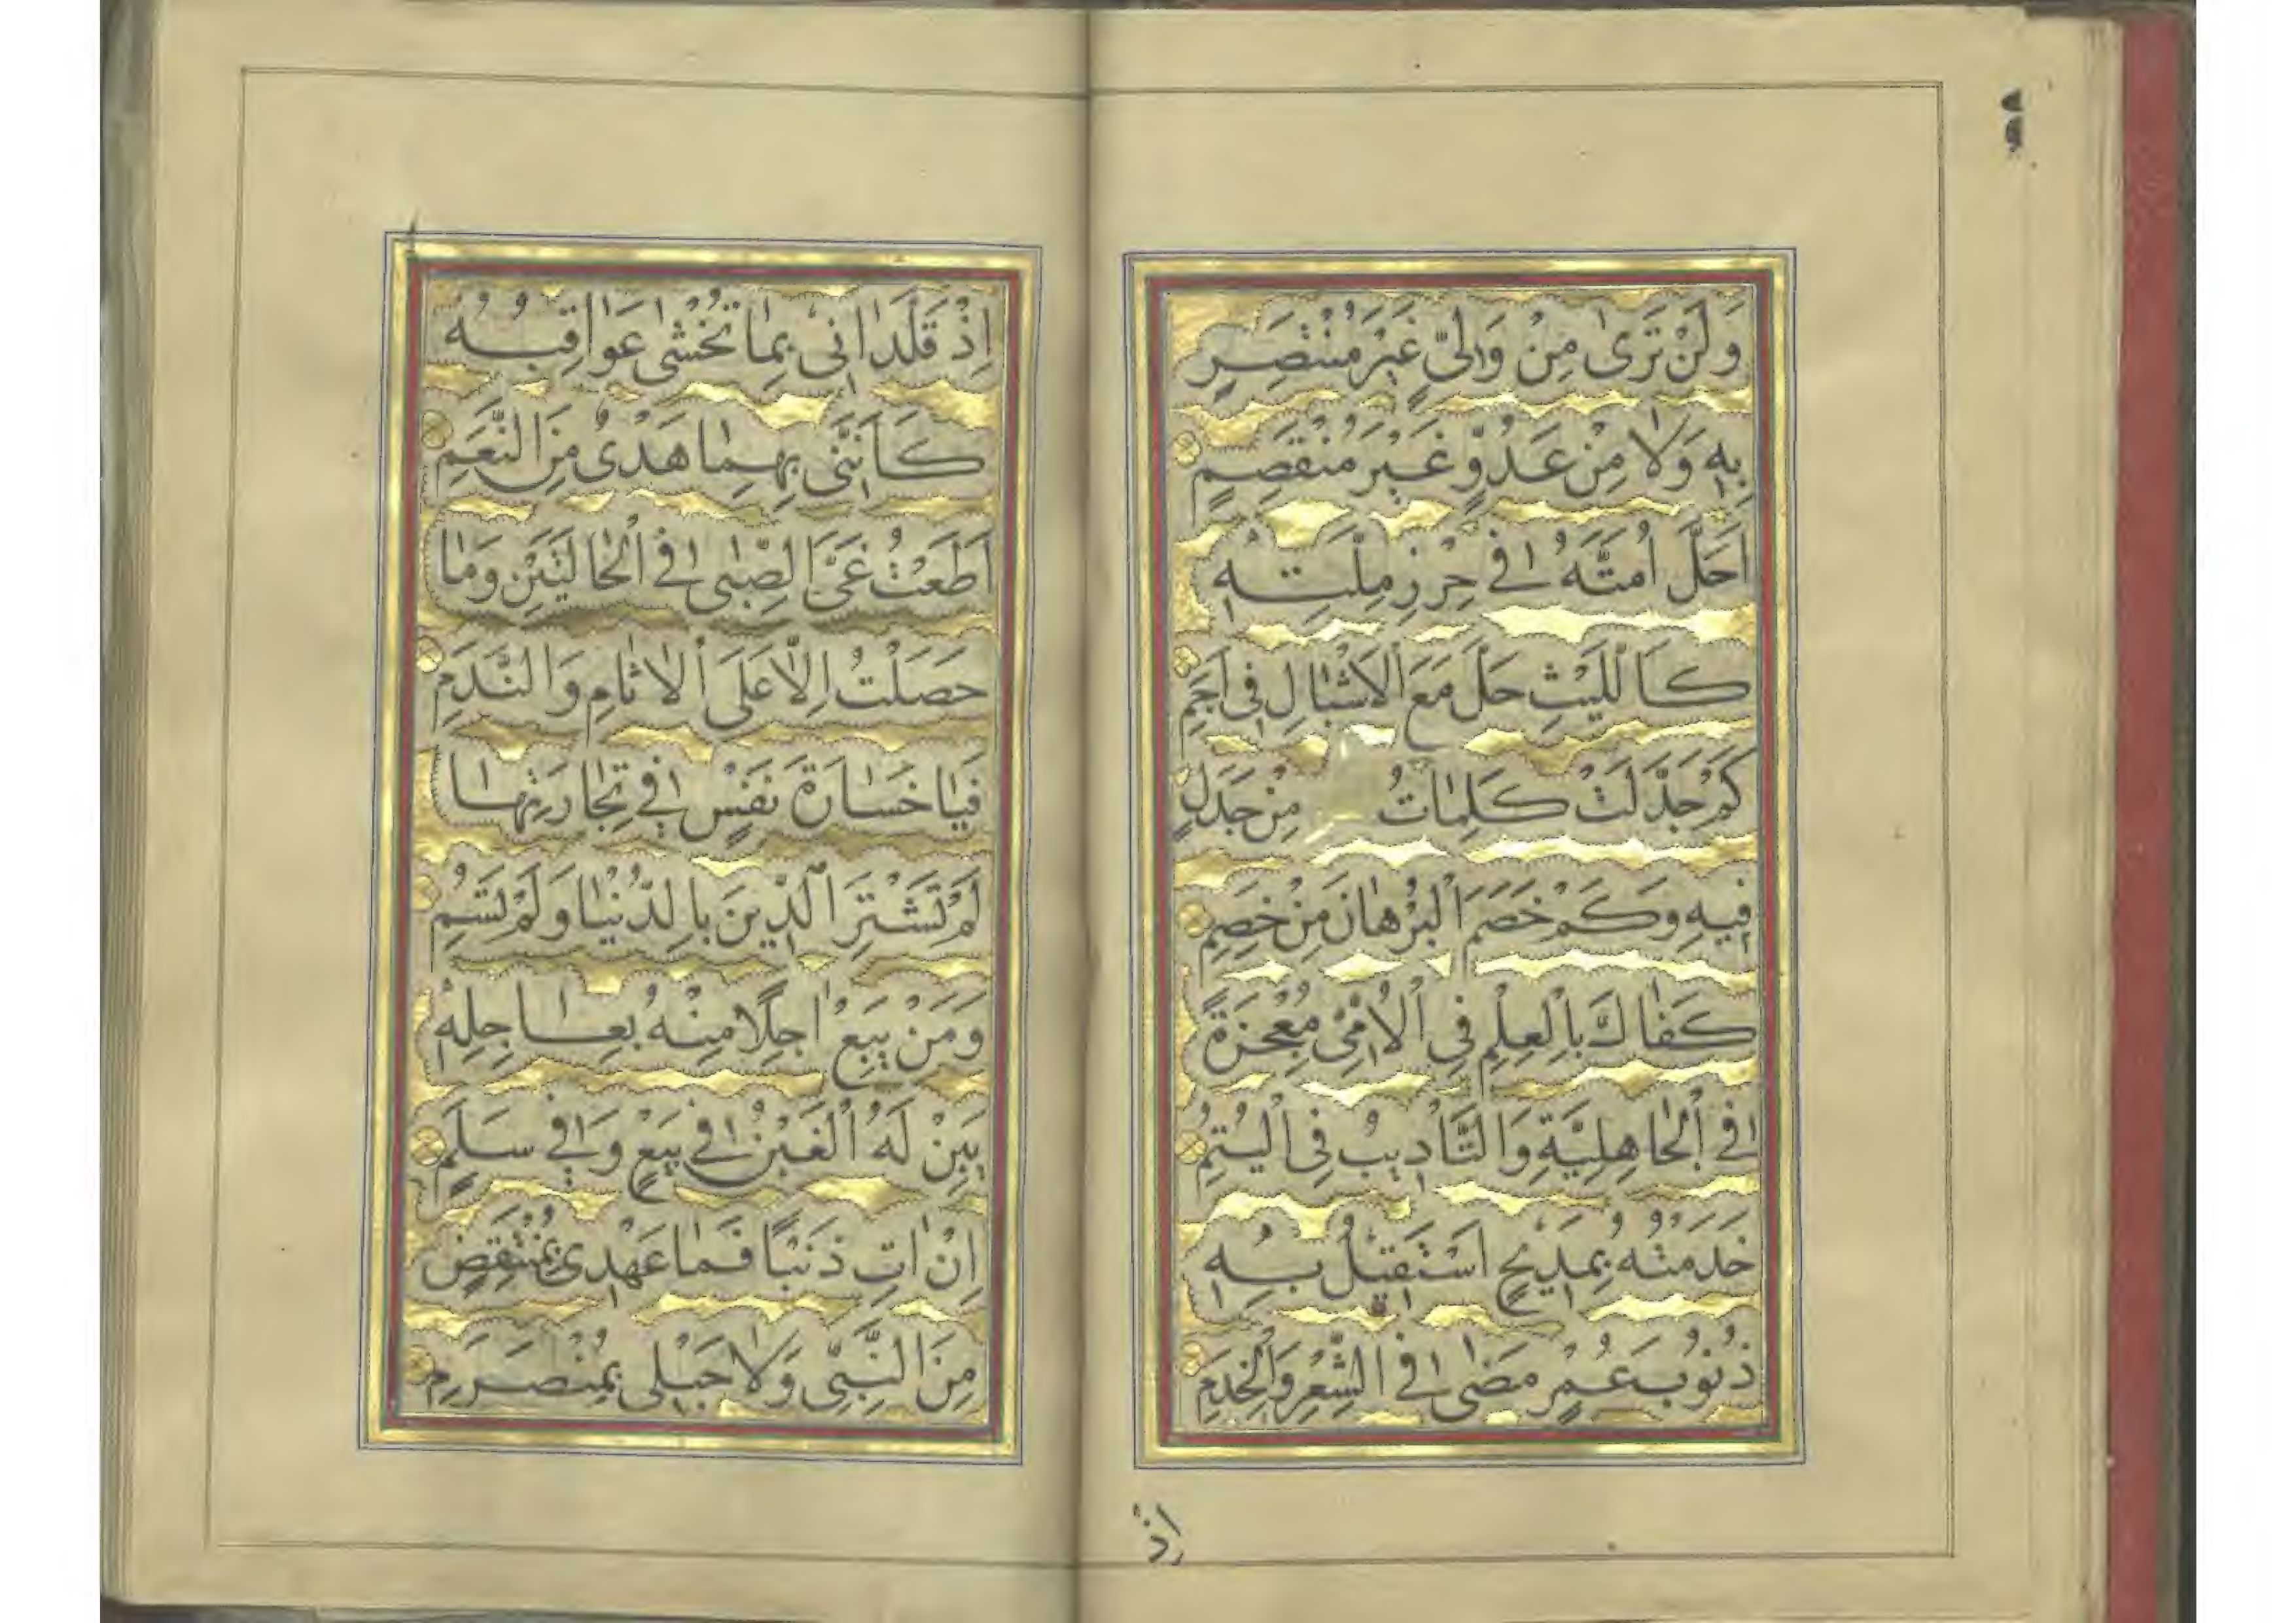 وَلَنْ تَرىٰ مِنْ وَلِيٍّ غَيْرَ مُنْتَصِرٍ
بِهٖ وَلَا مِنْ عَدُوٍّ غَيْرَ مُنْقَصِمٍ
اَحَلَّ اُمَّتَهُ فِي حِرْزِ مِلَّتِهٖ
كَاللَّيْثِ حَلَّ مَعَ الْاَشْبَالِ فِي اَجَمِ
كَمْ جَدَّلَتْ كَلِمَاتُ مِنْ جَدَلٍ
فِيهِ وَكَمْ خَصَمَ الْبُرْهَانُ مِنْ خَصِمِ
كَفَاكَ بِالْعِلْمِ فِي الْاُمِّيِّ مُعْجِزَةً
فِي الْجَاهِلِيَّةِ وَالتَّأْدِيبُ فِي الْيُتُمِ
خَدَمْتُهُ بِمَدِيحٍ اَسْتَقِيلُ بِهٖ
ذُنُوبَ عُمْرٍ مَضىٰ فِي الشِّعْرِ وَالْخِدَمِ
اِذْ
اِذْ قَلَّدَانِي بِمَا تُخْشٰى عَوَاقِبُهُ
كَاَنَّنِي بِهِمَا هَدْىٌ مِنَ النَّعَمِ
اَطَعْتُ غَيَّ الصِّبٰى فِي الْحَالَتَيْنِ وَمَا
حَصَلْتُ اِلَّا عَلَى الْاٰثَامِ وَالنَّدَمِ
فَيَا خَسَارَةَ نَفْسٍ فِي تِجَارَتِهَا
لَمْ تَشْتَرِ الدِّينَ بِالدُّنْيَا وَلَمْ تَسُمِ
وَمَنْ يَبِعْ اٰجِلًا مِنْهُ بِعَاجِلِهٖ
يَبِنْ لَهُ الْغَبْنُ فِي بَيْعٍ وَفِي سَلَمٍ
اِنْ اٰتِ ذَنْبًا فَمَا عَهْدِي بِمُنْتَقِضٍ
مِنَ النَّبِيِّ وَلَا حَبْلِي بِمُنْصَرِمِ